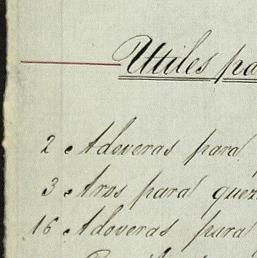 Utiles pa
2 Adoveras para
3 Aros para quez
16 Adoveras para